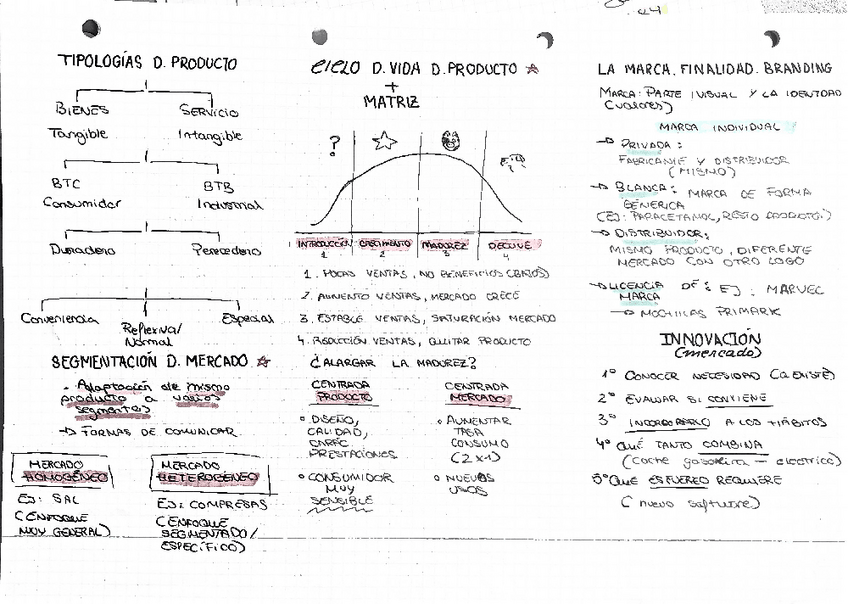 TIPOLOGÍAS D. PRODUCTO
BIENES
SERVICIO
Tangible
Intangible
BTC
BTB
Consumidor
Industrial
Duradero
Perecedero
Conveniencia
Reflexiva/
Normal
Especial
SEGMENTACIÓN D. MERCADO ☆
- Adaptación de mismo
producto a varios
segmentos
→ FORMAS DE COMUNICAR
MERCADO
HOMOGÉNEO
EJ: SAL
(ENFOQUE
MUY GENERAL)
MERCADO
HETEROGÉNEO
EJ: COMPRESAS
(ENFOQUE
SEGMENTADO/
ESPECÍFICO)
CICLO D. VIDA D. PRODUCTO ☆
+
MATRIZ
?
INTRODUCCIÓN
CRECIMIENTO
MADUREZ
DECLIVE
1
2
3
4
1. POCAS VENTAS, NO BENEFICIOS (BAJOS)
2. AUMENTO VENTAS, MERCADO CRECE
3. ESTABLE VENTAS, SATURACIÓN MERCADO
4. REDUCCIÓN VENTAS, QUITAR PRODUCTO
¿ALARGAR LA MADUREZ?
CENTRADA
PRODUCTO
• DISEÑO,
CALIDAD,
CARÁC.
PRESTACIONES
• CONSUMIDOR
MUY
SENSIBLE
CENTRADA
MERCADO
• AUMENTAR
TASA
CONSUMO
(2x1)
• NUEVOS
USOS
LA MARCA. FINALIDAD. BRANDING
MARCA: PARTE VISUAL Y LA IDENTIDAD
(VALORES)
MARCA INDIVIDUAL
→ PRIVADA:
FABRICANTE Y DISTRIBUIDOR
(MISMO)
→ BLANCA: MARCA DE FORMA
GENÉRICA
(EJ: PARACETAMOL, RESTO PRODUCTO.)
→ DISTRIBUIDOR:
MISMO PRODUCTO, DIFERENTE
MERCADO CON OTRO LOGO
→ LICENCIA DE: EJ: MARVEL
MARCA
→ MOCHILAS PRIMARK
INNOVACIÓN
(mercado)
1º CONOCER NECESIDAD (Q EXISTE)
2º EVALUAR SI CONVIENE
3º INCORPORARLO A LOS HÁBITOS
4º QUÉ TANTO COMBINA
(coche gasolina - eléctrico)
5º QUÉ ESFUERZO REQUIERE
(nuevo software)